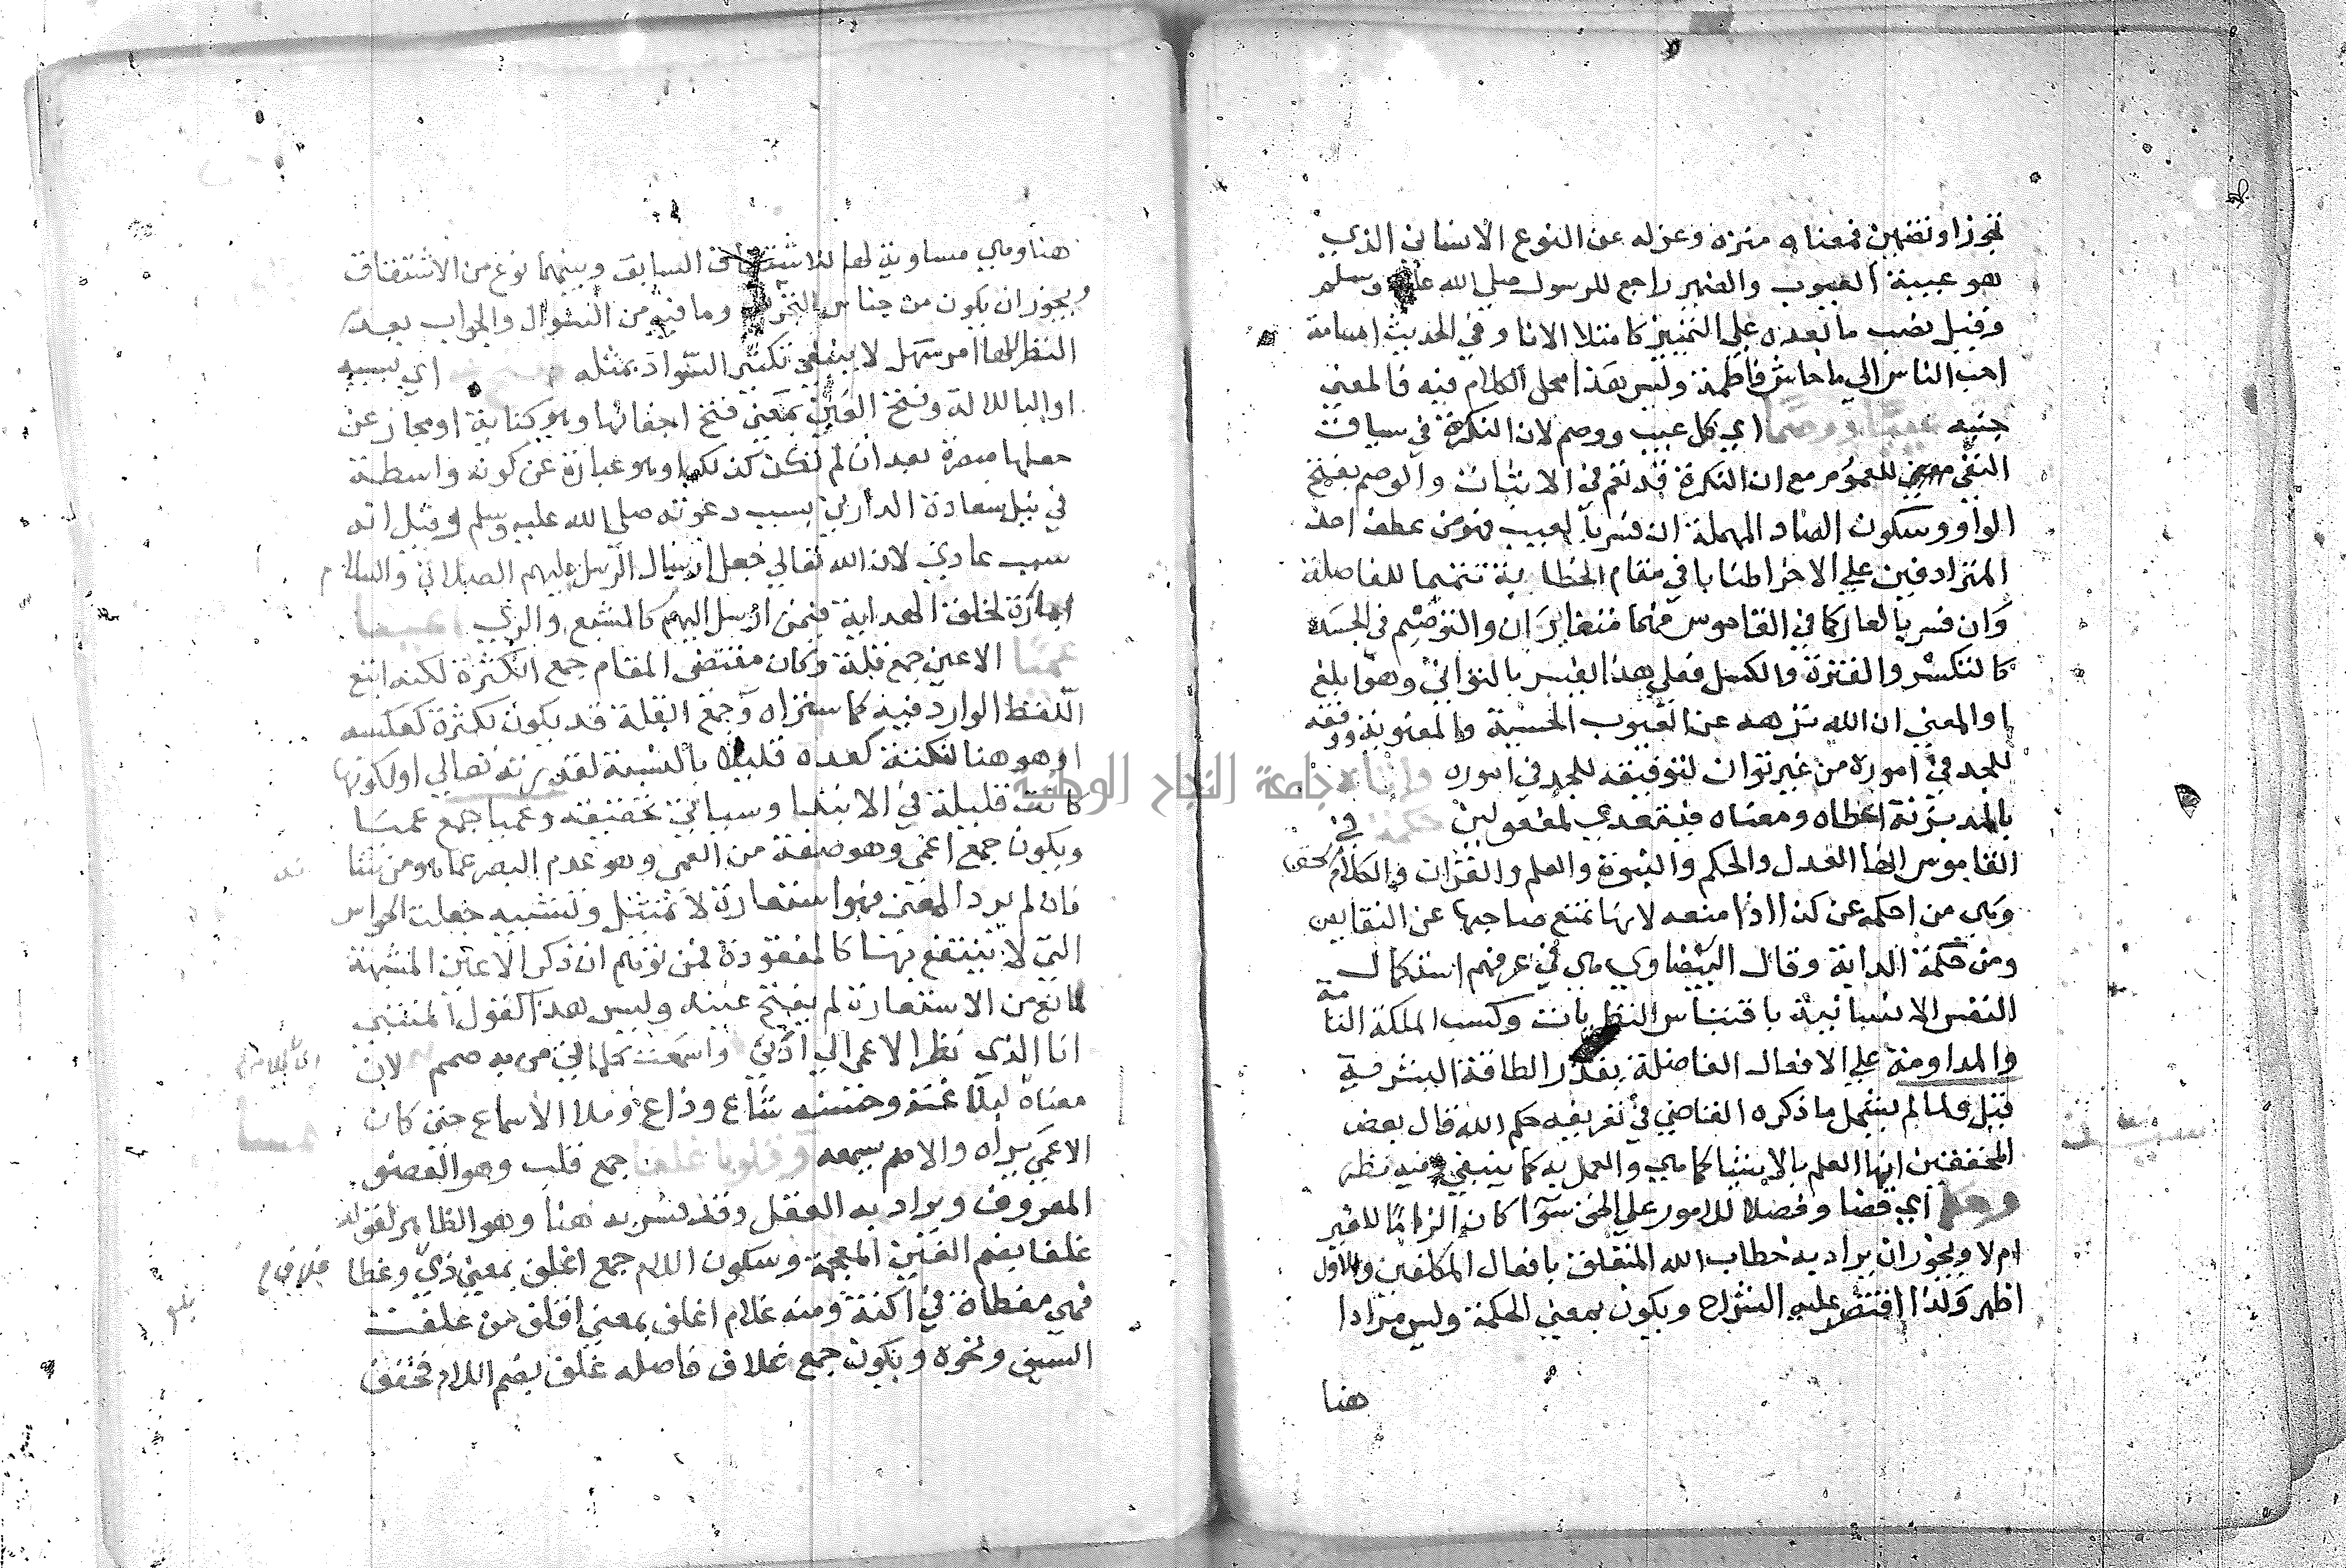 تجوزا وتضمين فمعناه منزه وعزله عن النوع الانساني الذي
هو عيبة العيوب والضمير راجع للرسول صلي الله عليه وسلم
وقيل نصب ما بعده علي التمييز كامتلا الانا وفي الحديث اسامة
احب الناس الي ما حاش فاطمة وليس هذا محل الكلام فيه فالمعني
جنبه عيبا ووصما اي كل عيب ووصم لان النكرة في سياق
النفي للعموم مع ان النكرة قد تعم في الاثبات والوصم بفتح
الواو وسكون الصاد المهملة ان فسر بالعيب فهو من عطف احد
المترادفين علي الاخر اطنابا في مقام الخطابة تتميما للفاصلة
وان فسر بالعار كما في القاموس فهما متغايران والتوصيم في الجسد
كالتكسر والفترة والكسل فعلي هذا يفسر بالتواني وهو ابلغ
او المعني ان الله نزهه عن العيوب الحسية والمعنوية ووفقه
للجد في اموره من غير توان لتوفيقه للجد في اموره واتاه
بالمد بزنة اعطاه ومعناه فيتعدي لمفعولين حكمة في
القاموس انها العدل والحكم والنبوة والعلم والقرآن والكلام الحق
وهي من احكمه عن كذا اذا منعه لانها تمنع صاحبها عن النقايص
ومن حكمة الدابة وقال البيضاوي هي في عرفهم استكمال
النفس الانسانية باقتباس النظريات وكسب الملكة التامة
والمداومة علي الافعال الفاضلة بقدر الطاقة البشرية
قيل ولما لم يشمل ما ذكره القاضي في تعريفه حكم الله قال بعض
المحققين انها العلم بالاشيا كما هي والعمل به كما ينبغي وفيه نظر
وحكما اي قضا وفصلا للامور علي الحق سوآ كان الزاما للغير
ام لا ويجوز ان يراد به خطاب الله المتعلق بافعال المكلفين والاول
اظهر ولذا اقتصر عليه الشراح ويكون بمعني الحكمة وليس مرادا
هنا
هنا وهي مساوية لها السابق وبينهما نوع من الاشتقاق
ويجوز ان يكون من جناس وما فيه من السؤال والجواب بعد
النظر لهذا امر سهل لا ينبغي تكثير السواد بمثله اي بسببه
او البا للالة وفتح العين بمعني فتح اجفانها وهو كناية او مجاز عن
جعلها مبصرة بعد ان لم تكن كذلك وهو عبارة عن كونه واسطة
في نيل سعادة الدارين بسبب دعوته صلي الله عليه وسلم وقيل انه
سبب عادي لان الله تعالي جعل ارسال الرسل عليهم الصلاة والسلام
امارة لخلق الهداية فيمن ارسل اليهم كالشبع والري اعينا
عميا الاعين جمع قلة وكان مقتضي المقام جمع الكثرة لكنه اتبع
اللفظ الوارد فيه كما ستراه وجمع القلة قد يكون لكثرة كعكسه
او هو هنا لنكتة كعده قليلا بالنسبة لقدرته تعالي او لكونها
كانت قليلة في الابتدا وسياتي تحقيقه وعميا جمع عميا
ويكون جمع اعمي وهو صفة من العمي وهو عدم البصر عما هو من شا
فان لم يرد المعين فهو استعارة لا تمثيل وتشبيه جعلت الحواس
التي لا ينتفع بها كالمفقودة فمن توهم ان ذكر الاعين المشبهة
مانع من الاستعارة لم يفتح عينه وليس هذا كقول المتنبي
انا الذي نظر الاعمي الي ادبي واسمعت كلماتي من به صمم لان
معناه ليلا غمة وحسنه شاع وذاع وملا الاسماع حتي كان
الاعمي يراه والاصم يسمعه وقلوبا غلفا جمع قلب وهو العضو
المعروف ويراد به العقل وقد فسر به هنا وهو الظاهر لقوله
غلفا بضم الغين المعجمة وسكون اللام جمع اغلف بمعني ذي وغطا
فهي مغطاة في اكنة ومنه غلام اغلف بمعني اقلف من غلفت
السيف ونحوه ويكون جمع غلاف فاصله غلف بضم اللام فخفف
جامعة النجاح الوطنية